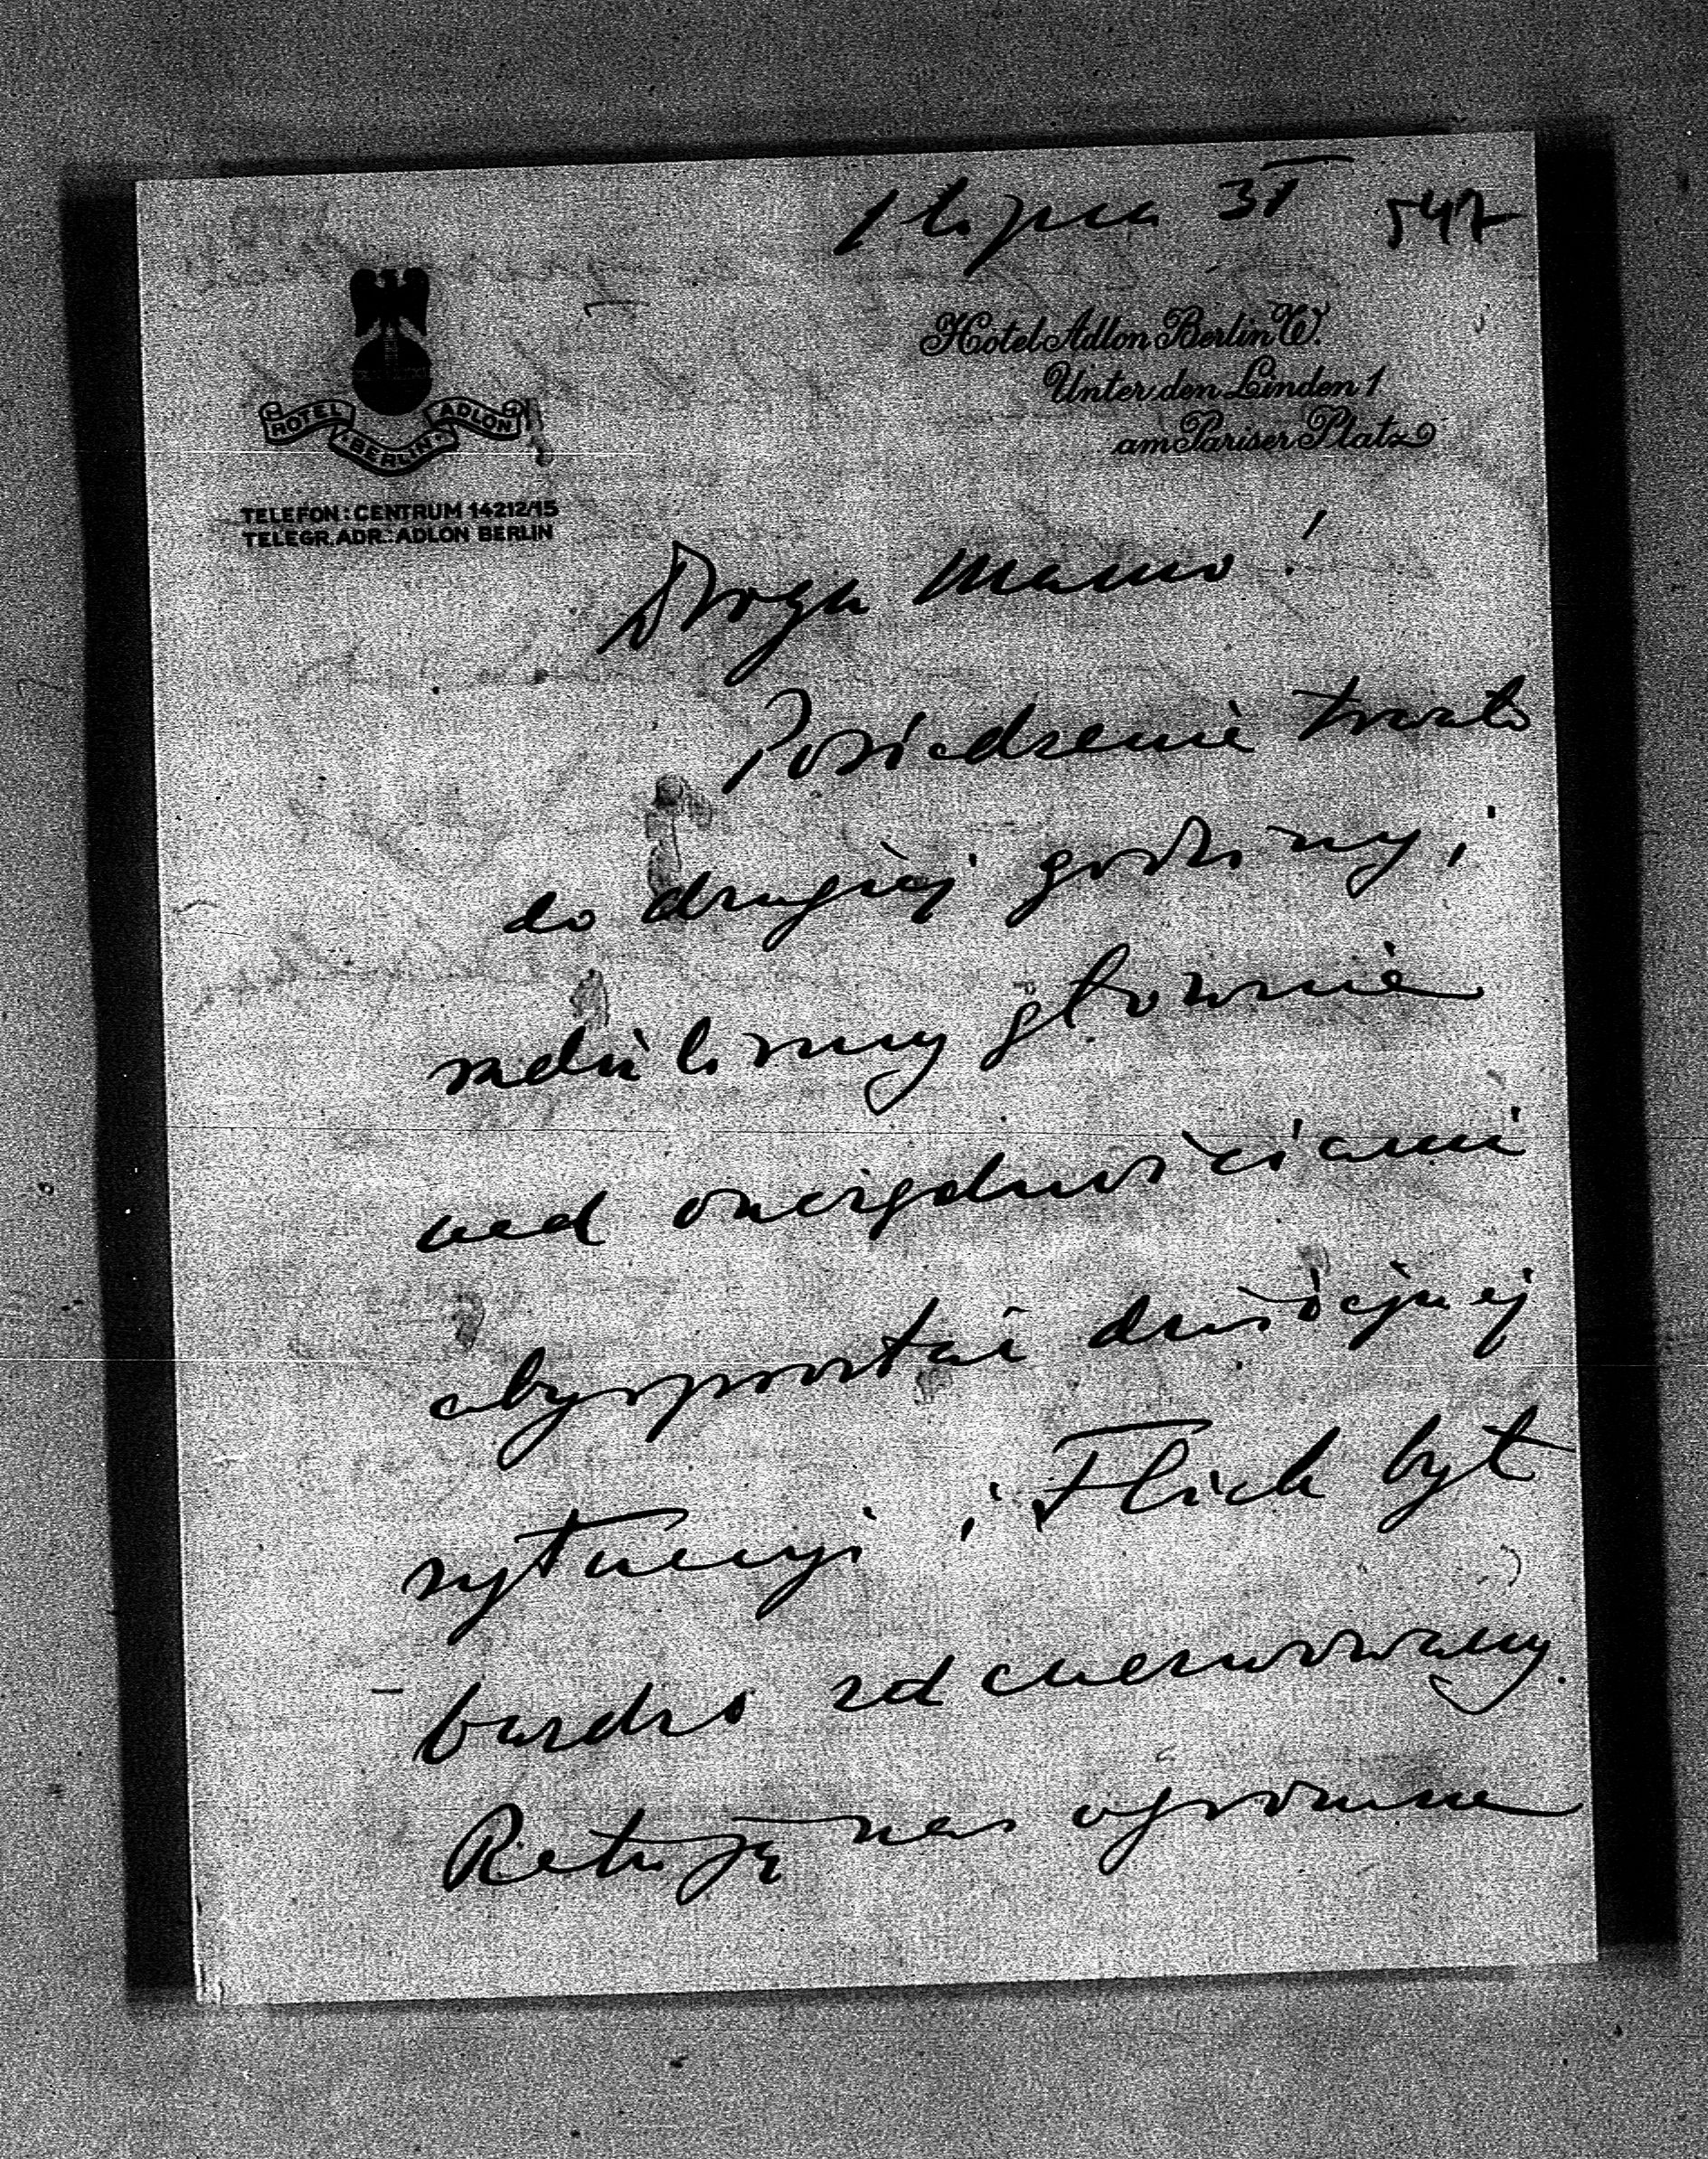 1 lipca 31 547
Hotel Adlon Berlin W.
Unter den Linden 1
am Pariser Platz
HOTEL ADLON
BERLIN
TELEFON: CENTRUM 14212/15
TELEGR. ADR.: ADLON BERLIN
Droga Mamo!
Posiedzenie trwało
do drugiej godziny;
radziliśmy głównie
nad oszczędnościami
aby sprostać dzisiejszej
sytuacji; Flick był
bardzo zdenerwowany.
Ratują nas ogromne